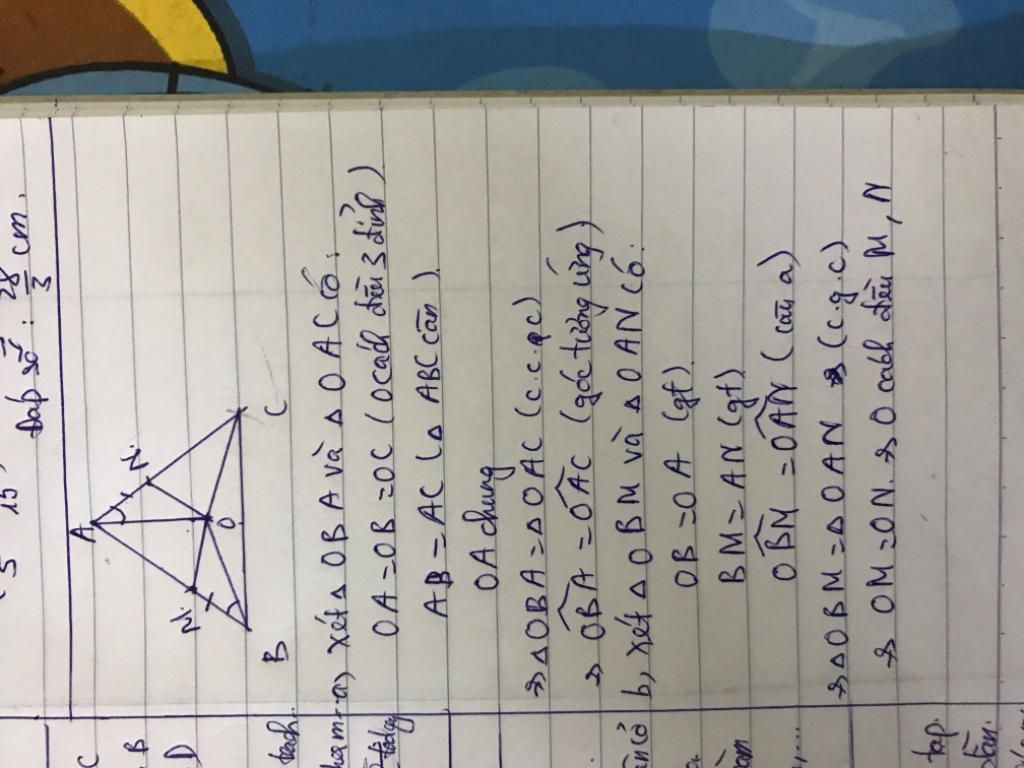 5 15,
Đáp số: 28/3 cm.
A
M.
N.
O
B
C
a, xét Δ OBA và Δ OAC có:
OA = OB = OC (O cách đều 3 đỉnh)
AB = AC (Δ ABC cân)
OA chung
=> Δ OBA = Δ OAC (c.c.c)
=> OBA = OAC (góc tương ứng)
b, xét Δ OBM và Δ OAN có:
OB = OA (gt)
BM = AN (gt)
OBM = OAN (câu a)
=> Δ OBM = Δ OAN (c.g.c)
=> OM = ON. => O cách đều M, N
C
B
D
tập.